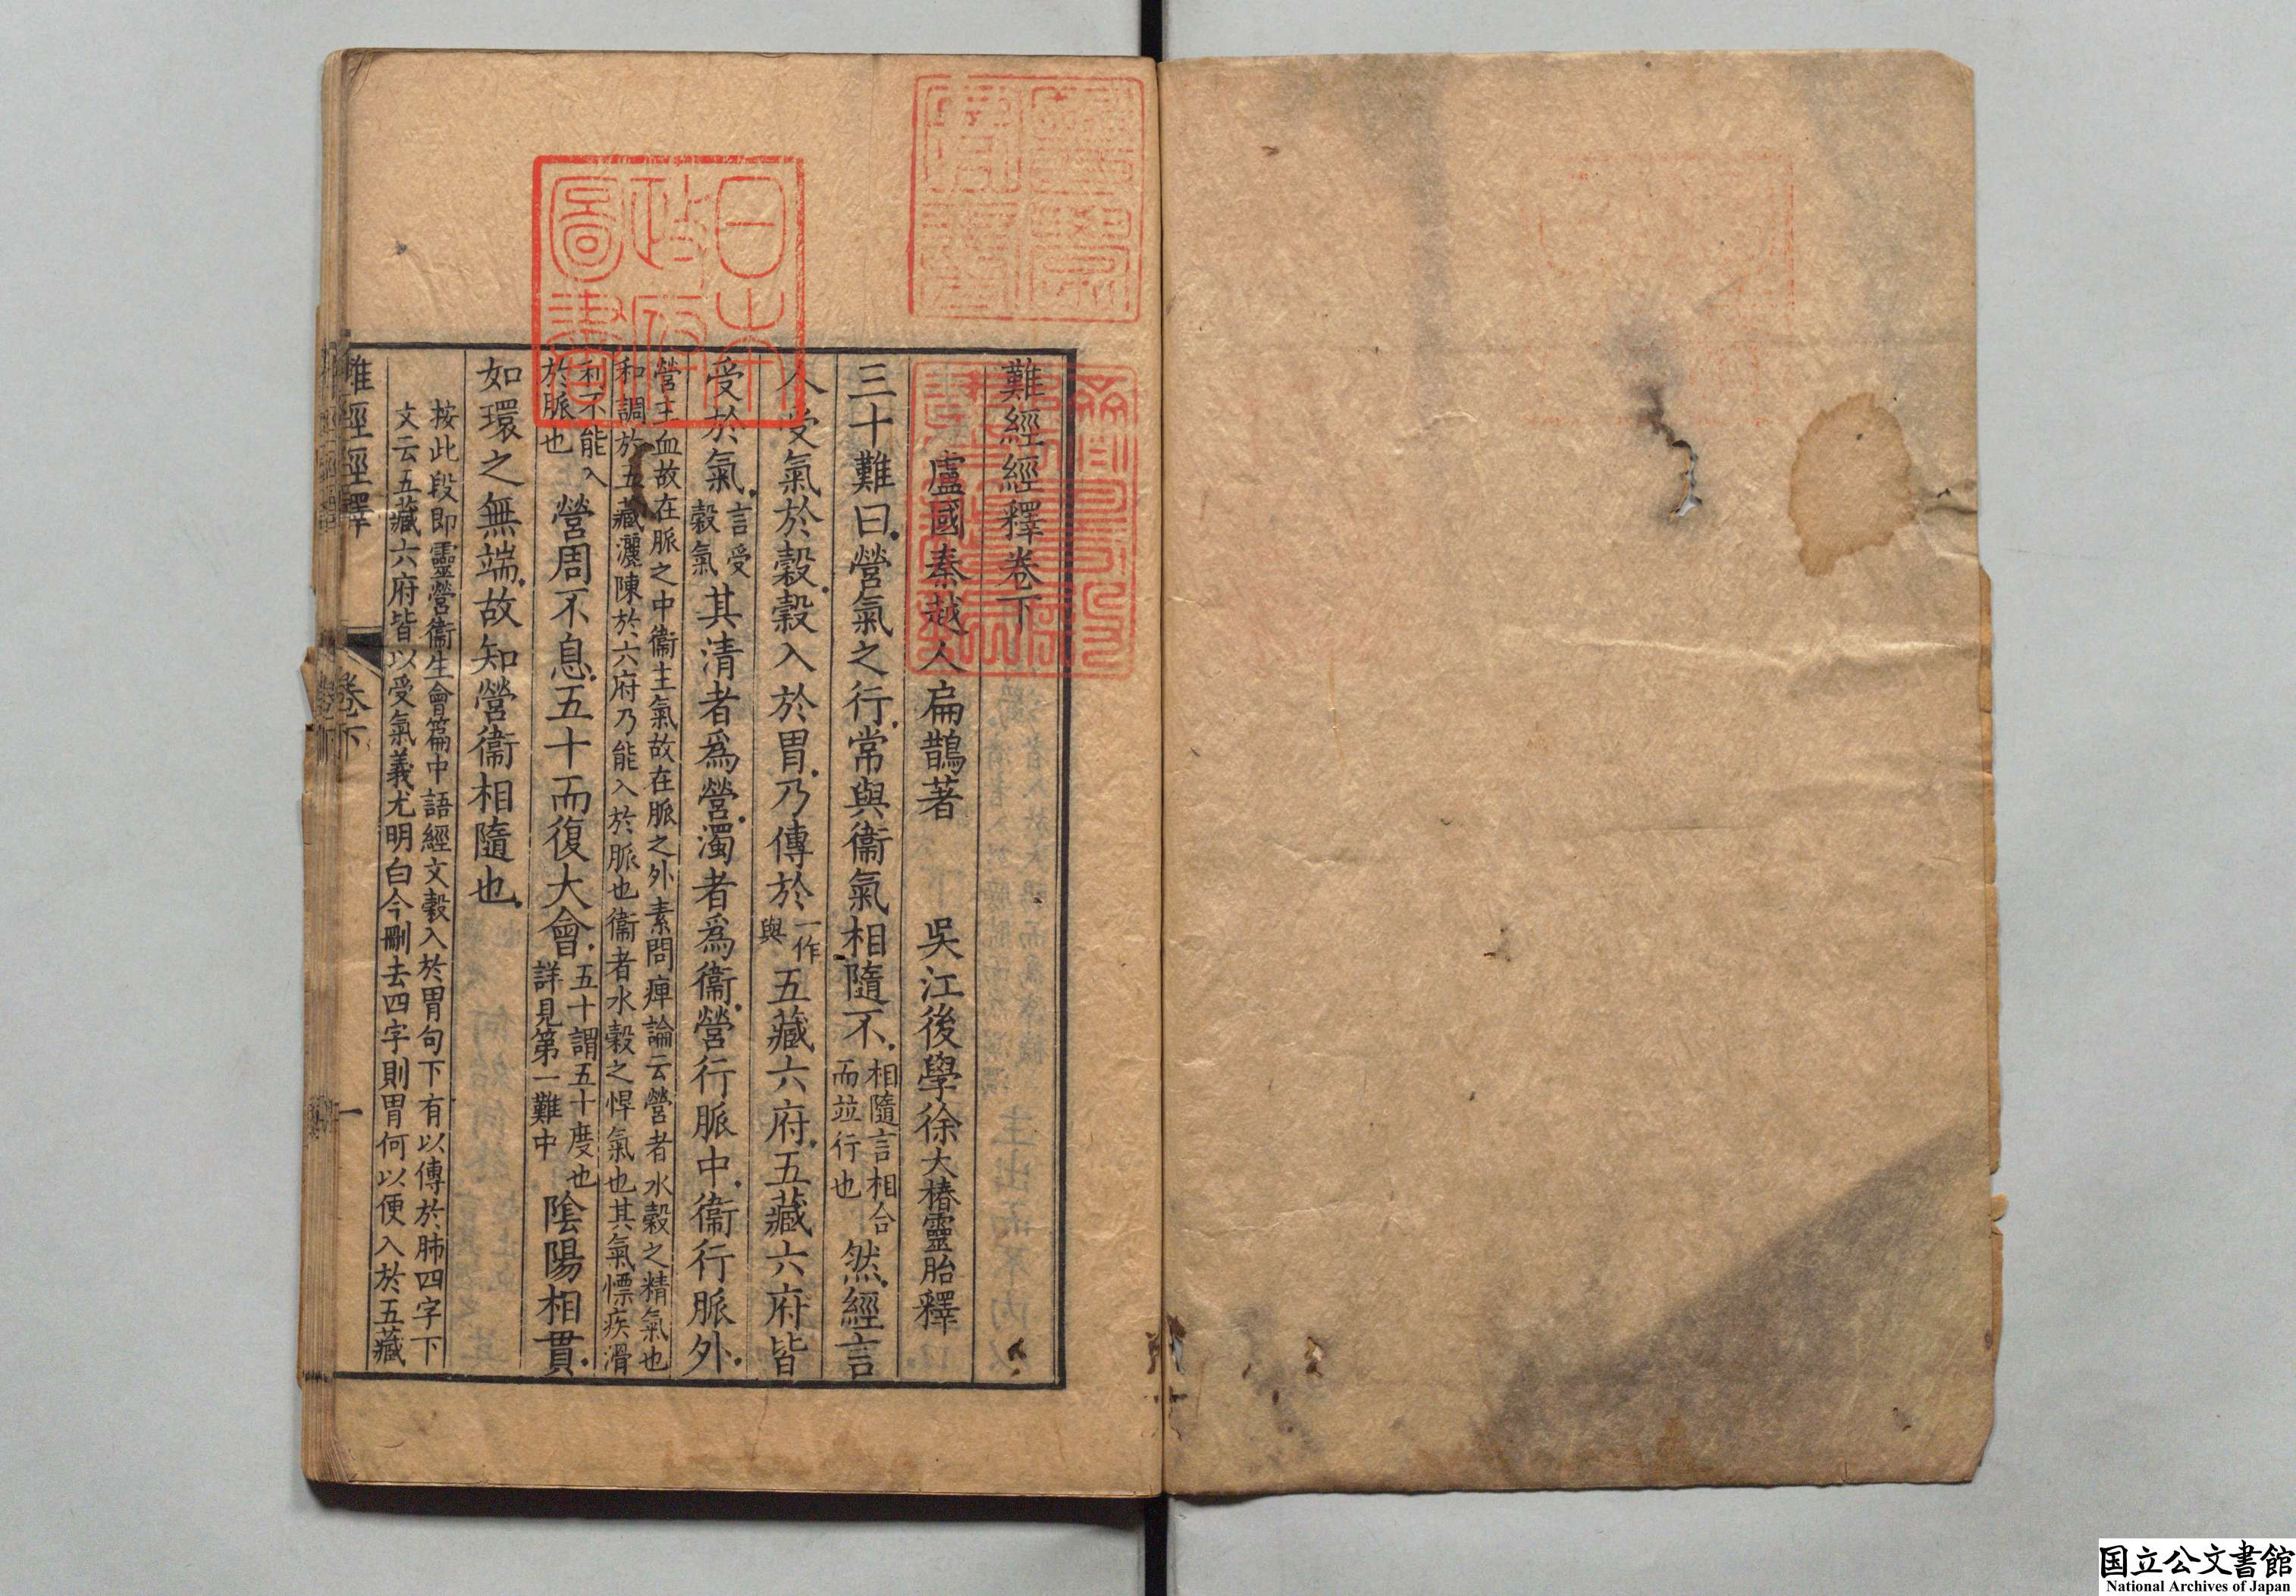 難經經釋卷下
盧國秦越人扁鵲著　吳江後學徐大椿靈胎釋
三十難曰營氣之行常與衞氣相隨不相隨言相合而並行也然經言
人受氣於穀穀入於胃乃傳於一作與五藏六府五藏六府皆
受於氣言受穀氣其清者爲營濁者爲衞營行脈中衞行脈外
營主血故在脈之中衞主氣故在脈之外素問痺論云營者水穀之精氣也
和調於五藏灑陳於六府乃能入於脈也衞者水穀之悍氣也其氣慓疾滑
利不能入於脈也營周不息五十而復大會五十謂五十度也詳見第一難中陰陽相貫
如環之無端故知營衞相隨也
按此段即靈營衞生會篇中語經文穀入於胃句下有以傳於肺四字下
文云五藏六府皆以受氣義尤明白今刪去四字則胃何以便入於五藏
難經經釋
卷下
一
日本政府圖書
国立公文書館
National Archives of Japan